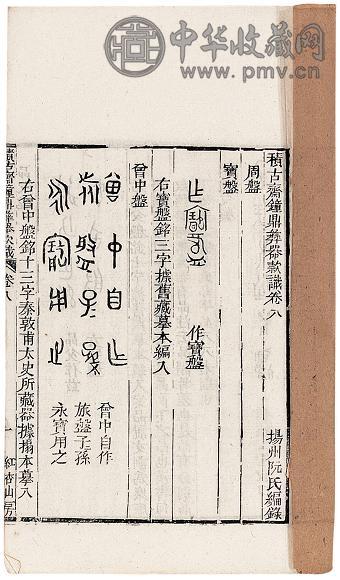 中华收藏网
www.pmv.cn
積古齋鐘鼎彝器款識卷八
揚州阮氏編錄
周盤
寶盤
作寶盤
右寶盤銘三字據舊藏摹本編入
曾中盤
曾中自作
旅盤子孫
永寶用之
右曾中盤銘十三字秦敦甫太史所藏器據搨本摹入
卷八
一